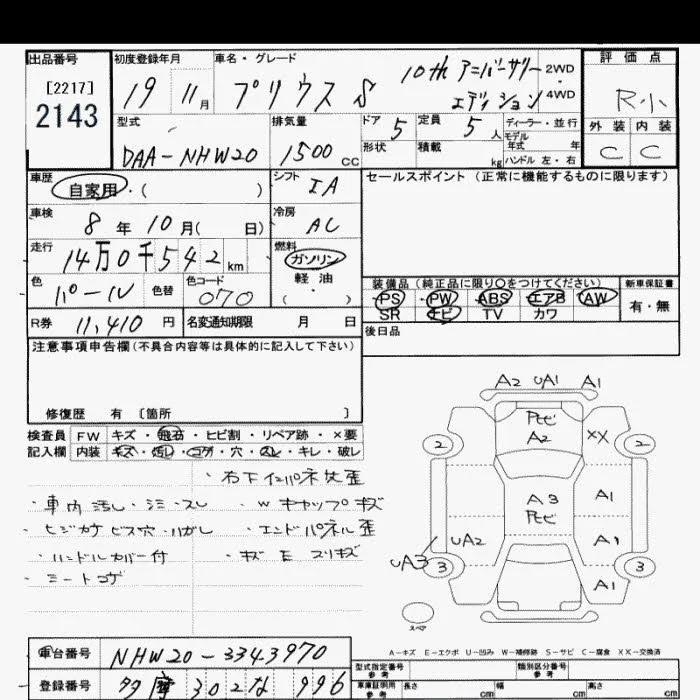 出品番号
[2217]
2143
初度登録年月
19 11月
車名・グレード
プリウス S 10th アニバーサリー エディション
2WD
4WD
評価点
R小
外装 内装
C C
型式
DAA-NHW20
排気量
1500 cc
ドア 5
定員 5 人
形状
積載 kg
ディーラー・並行
モデル
年式 年
ハンドル 左・右
車歴
自家用・( )
シフト IA
セールスポイント (正常に機能するものに限ります)
車検
8年10月( 日)
冷房 AC
走行
14万0千542km
燃料
ガソリン
軽油
( )
色
パール 色替
色コード
070
装備品(純正品に限り○をつけてください)
PS PW ABS エアB AW
SR ナビ TV カワ
新車保証書
有・無
R券 11,410 円
名変通知期限 月 日
後日品
注意事項申告欄(不具合内容等は具体的に記入して下さい)
修復歴 有 〔箇所 〕
検査員 FW キズ・飛石・ヒビ割・リペア跡・×要
記入欄 内装 キズ・汚レ・コゲ・穴・スレ・キレ・破レ
・車内汚レ・シミ・スレ
・Wキャップキズ
・ヒジカケビス穴・ハガレ
・エンドパネル歪
・ハンドルカバー付
・シートコゲ
A2 UA1 A1
A2
XX
2 2
A3
A1
UA2
A1
UA3
3 3
A1
スペア
A-キズ E-エクボ U-凹み W-補修跡 S-サビ C-腐食 XX-交換済
車台番号 NHW20-3343970
登録番号 多摩 302 な 996
型式指定番号 参考
類別区分番号 参考
車庫証明用 参考 長さ cm 幅 cm 高さ cm